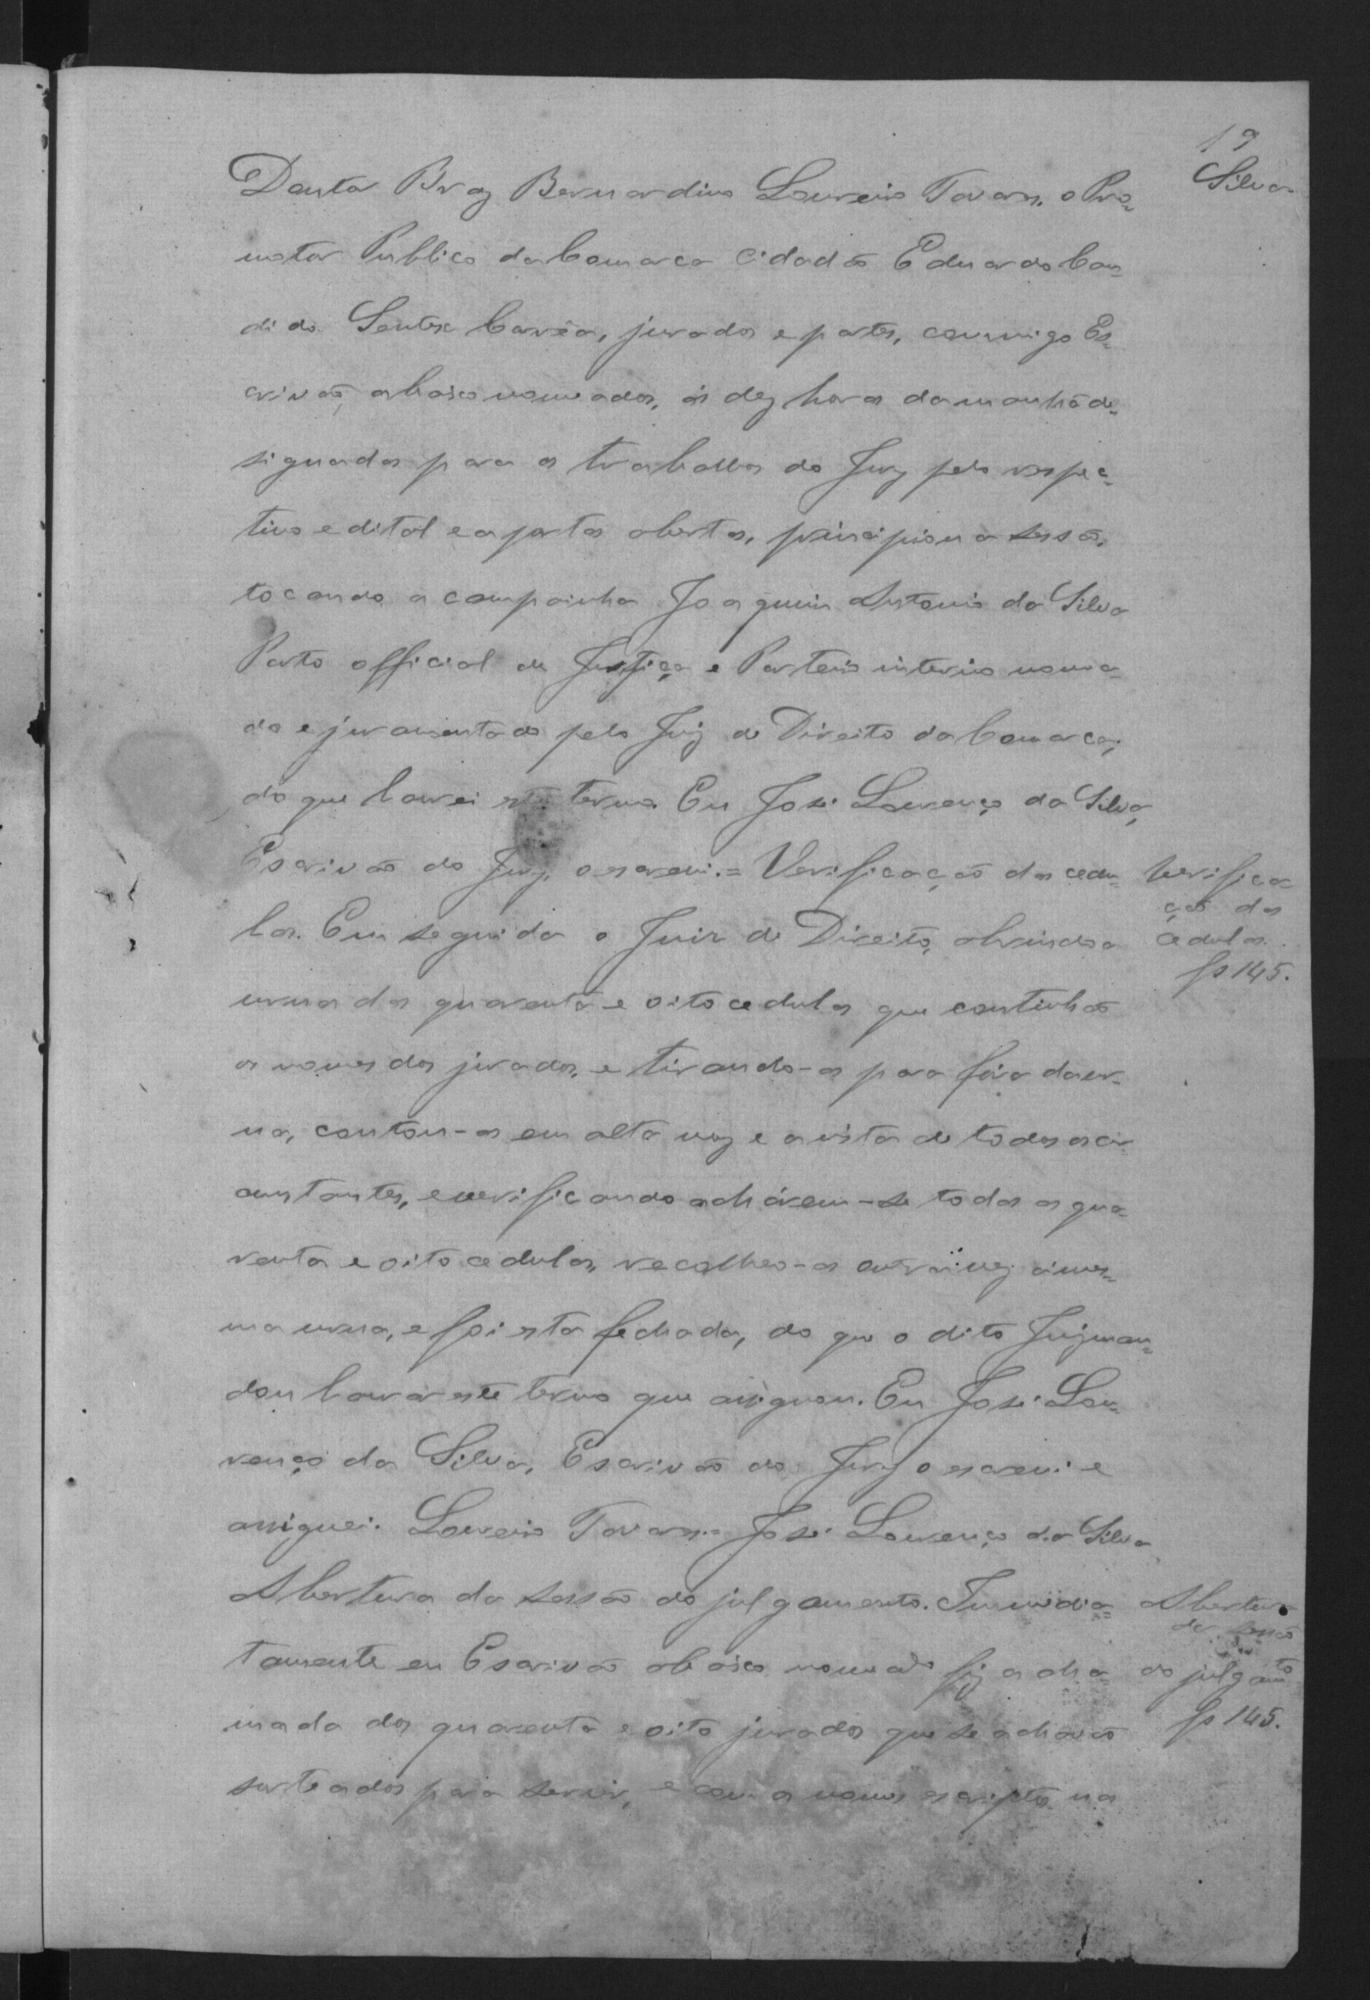 19
Silva
Doutor Braz Bernardino Loureiro Tavares, o Pro-
motor Publico da Comarca Cidadão Eduardo Can-
dido Corrêa, jurados e partes, commigo Es-
crivão, abaixo nomeados, ás dez horas da manhã de-
signadas para os trabalhos do Jury pelo respec-
tivo edital e a portas abertas, principiou a sessão,
tocando a campainha Joaquim Antonio da Silva
Porto official de Justiça e Porteiro interino nomea-
do e juramentado pelo Juiz de Direito da Comarca;
do que lavrei este termo. Eu José Lourenço da Silva,
Escrivão do Jury, o escrevi. = Verificação das cedu-
las. Em seguida o Juiz de Direito, abrindo a
urna das quarenta e oito cedulas que continhão
os nomes dos jurados, e tirando-as para fóra da ur-
na, contou-as em alta voz e a vista de todos os cir-
cunstantes, e verificando acharem-se todas as qua-
renta e oito cedulas, recolheo-as outra vez á mes-
ma urna, e foi esta fechada, do que o dito Juiz man-
dou lavrar este termo que assignou. Eu José Lou-
renço da Silva, Escrivão do Jury o escrevi e
assignei. Loureiro Tavares. José Lourenço da Silva
Abertura da sessão do julgamento. Immedia-
tamente eu Escrivão abaixo nomeado fiz a cha-
mada dos quarenta e oito jurados que se achavão
sorteados para servir, e com os nomes escriptos na
Verifica-
ção das
cedulas.
fs 145.
Abertura
da sessão
do julgamto
fs 145.